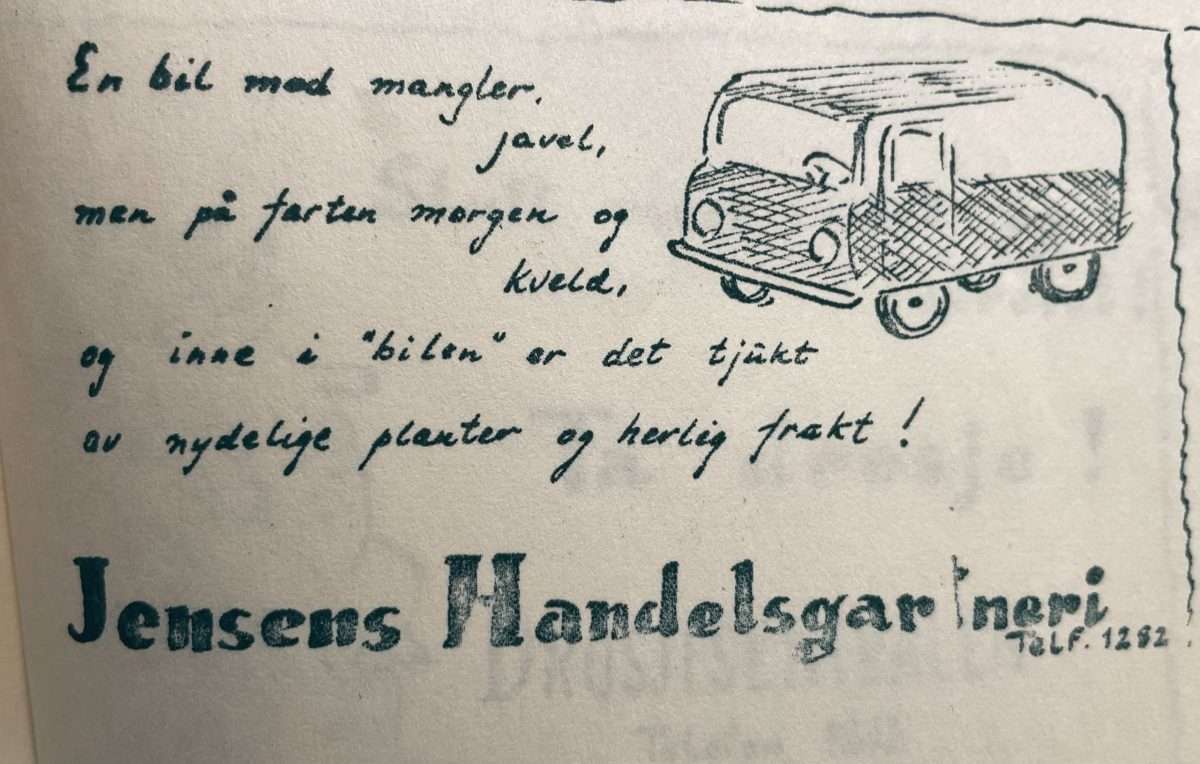 En bil med mangler,
javel,
men på farten morgen og
kveld,
og inne i "bilen" er det tjukt
av nydelige planter og herlig frakt!
Jensens Handelsgartneri
Telf. 1282